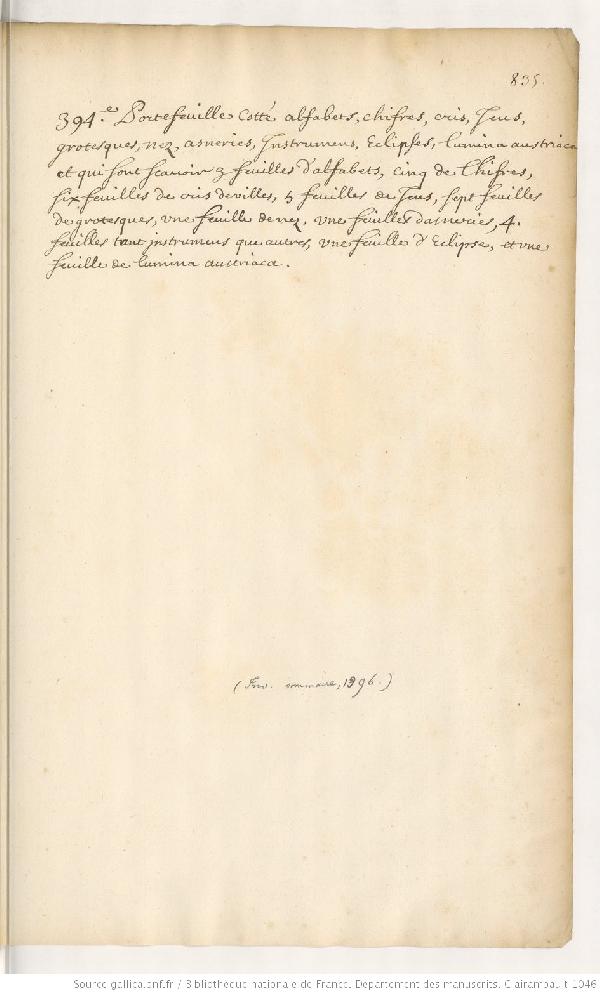 835.
394.e Portefeuille Cotté alfabets, chifres, cris, Jeus,
grotesques, nez, asneries, Instrumens, Eclipses, lumina austriaca
et qui sont scavoir 3 feuilles d'alfabets, cinq de Chifres,
six feuilles de cris de villes, 5 feuilles de Jeus, sept feuilles
de grotesques, vne feuille de nez, vne feuilles d'asneries, 4.
feuilles tant instrumens que autres, vne feuille d'Eclipse, et vne
feuille de lumina austriaca.
(Inv. sommaire, 1396.)
Source gallica.bnf.fr / Bibliothèque nationale de France. Département des manuscrits. Clairambault 1046